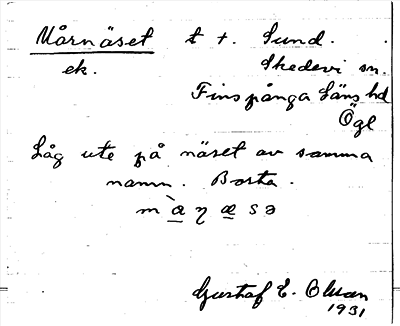 Mårnäset t t. Sund.
ek. Skedevi sn.
Finspånga läns hd
Ögl
Låg ute på näset av samma
namn. Borta.
Gustaf E.
1931